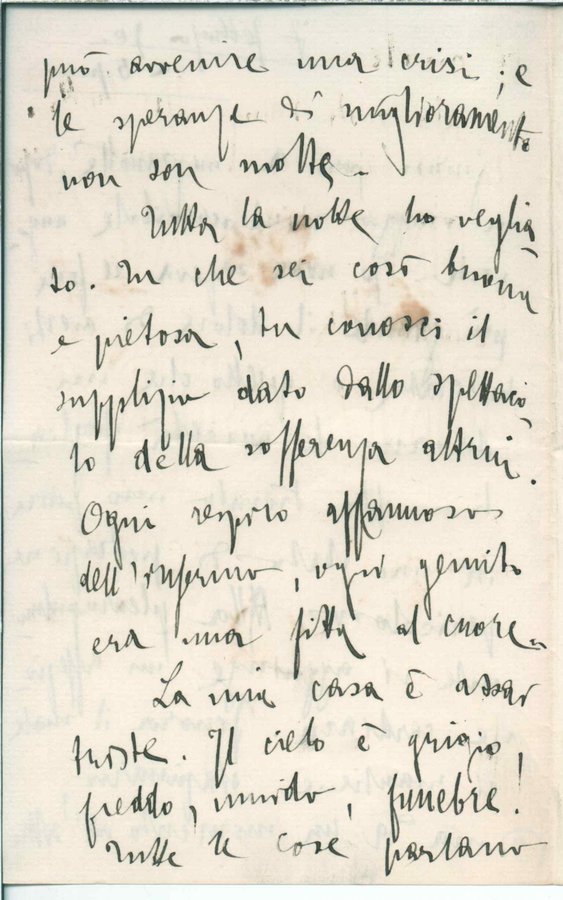 può avvenire una crisi; e
le speranze di miglioramento
non son molte.
Tutta la notte ho veglia
to. Tu che sei così buona
e pietosa, tu conosci il
supplizio dato dallo spettaco
lo della sofferenza altrui.
Ogni respiro affannoso
dell'infermo, ogni gemito
era una fitta al cuore.
La mia casa è assai
triste. Il cielo è grigio,
freddo, umido, funebre!
Tutte le cose parlano